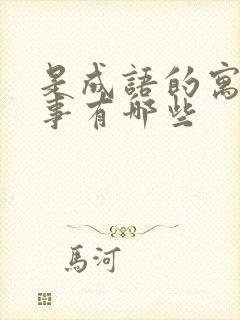 是成語的寓
事有哪些
馬河